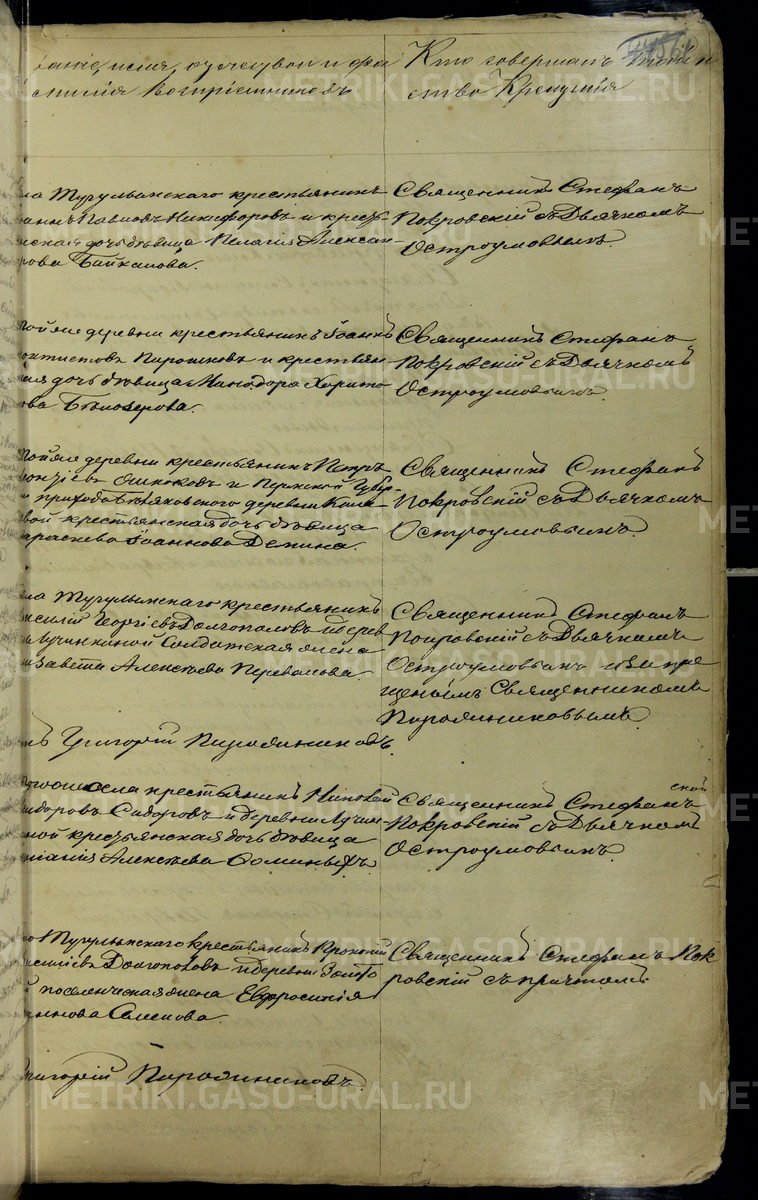 званіе, имя, отчество и фа
милія Воспріемниковъ
Кто совершалъ таин
ство Крещенія
ла Тугулымскаго крестьянинъ
Павловъ Никифоровъ и кресть
янская дочь дѣвица Пелагія Алексан
рова Байкалова.
Священникъ Стефанъ
Покровскій съ Дьячкомъ
Остроумовымъ.
той же деревни крестьянинъ Іоаннъ
Порошковъ и крестьян
ская дочь дѣвица Минодора Харито
нова Бѣлозерова.
Священникъ Стефанъ
Покровскій съ Дьячкомъ
Остроумовымъ.
той же деревни крестьянинъ Петръ
и Пермской Губер
и прихода деревни
вой крестьянская дочь дѣвица
араскева Іоаннова Демина.
Священникъ Стефанъ
Покровскій съ Дьячкомъ
Остроумовымъ.
ла Тугулымскаго крестьянинъ
асилій Георгіевъ Долгополовъ и дерев
ни Лучинкиной Солдатская жена
изавета Алексѣева Перевалова.
Священникъ Стефанъ
Покровскій съ Дьячкомъ
Остроумовымъ
щеннымъ Священникомъ
Пирожниковымъ.
Григорій Пирожниковъ.
села крестьянинъ Николай
идоровъ Сидоровъ и деревни Лучин
ной крестьянская дочь дѣвица
Алексѣева Фоминыхъ.
Священникъ Стефанъ
Покровскій съ Дьячкомъ
Остроумовымъ.
Тугулымскаго крестьянинъ Прокопій
Долгополовъ и деревни
поселенческая жена Евфросинія
аннова Семенова.
Священникъ Стефанъ Пок
ровскій съ причтомъ
ригорій Пирожниковъ.
METRIKI.GASO-URAL.RU